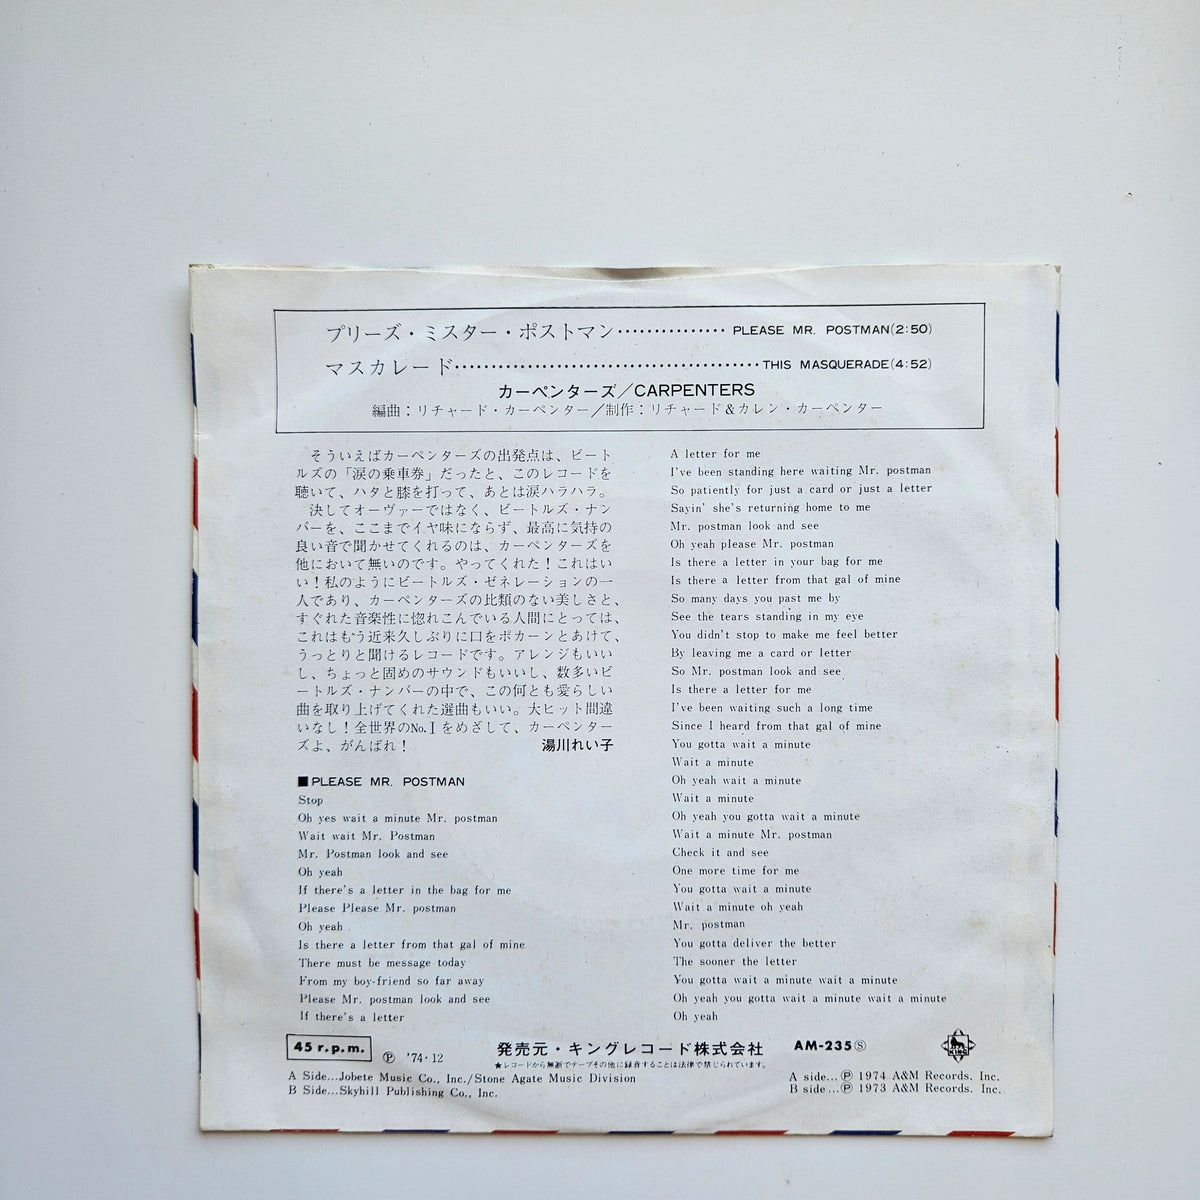 プリーズ・ミスター・ポストマン・・・・・・・・・・・・・・・ PLEASE MR. POSTMAN(2:50)
マスカレード・・・・・・・・・・・・・・・・・・・・・・・・・・・・・・・・・・・・・・・・・・ THIS MASQUERADE(4:52)
カーペンターズ／CARPENTERS
編曲：リチャード・カーペンター／制作：リチャード＆カレン・カーペンター
そういえばカーペンターズの出発点は、ビート
ルズの「涙の乗車券」だったと、このレコードを
聴いて、ハタと膝を打って、あとは涙ハラハラ。
決してオーヴァーではなく、ビートルズ・ナン
バーを、ここまでイヤ味にならず、最高に気持の
良い音で聞かせてくれるのは、カーペンターズを
他において無いのです。やってくれた！これはい
い！私のようにビートルズ・ゼネレーションの一
人であり、カーペンターズの比類のない美しさと、
すぐれた音楽性に惚れこんでいる人間にとっては、
これはもう近来久しぶりに口をポカーンとあけて、
うっとりと聞けるレコードです。アレンジもいい
し、ちょっと固めのサウンドもいいし、数多いビ
ートルズ・ナンバーの中で、この何とも愛らしい
曲を取り上げてくれた選曲もいい。大ヒット間違
いなし！全世界のNo.1をめざして、カーペンター
ズよ、がんばれ！ 湯川れい子
■PLEASE MR. POSTMAN
Stop
Oh yes wait a minute Mr. postman
Wait wait Mr. Postman
Mr. Postman look and see
Oh yeah
If there's a letter in the bag for me
Please Please Mr. postman
Oh yeah
Is there a letter from that gal of mine
There must be message today
From my boy-friend so far away
Please Mr. postman look and see
If there's a letter
A letter for me
I've been standing here waiting Mr. postman
So patiently for just a card or just a letter
Sayin' she's returning home to me
Mr. postman look and see
Oh yeah please Mr. postman
Is there a letter in your bag for me
Is there a letter from that gal of mine
So many days you past me by
See the tears standing in my eye
You didn't stop to make me feel better
By leaving me a card or letter
So Mr. postman look and see
Is there a letter for me
I've been waiting such a long time
Since I heard from that gal of mine
You gotta wait a minute
Wait a minute
Oh yeah wait a minute
Wait a minute
Oh yeah you gotta wait a minute
Wait a minute Mr. postman
Check it and see
One more time for me
You gotta wait a minute
Wait a minute oh yeah
Mr. postman
You gotta deliver the better
The sooner the letter
You gotta wait a minute wait a minute
Oh yeah you gotta wait a minute wait a minute
Oh yeah
45 r.p.m. Ⓟ '74・12 発売元・キングレコード株式会社 AM-235Ⓢ KING
★レコードから無断でテープその他に録音することは法律で禁じられています。
A Side...Jobete Music Co., Inc./Stone Agate Music Division
B Side...Skyhill Publishing Co., Inc.
A side...Ⓟ 1974 A&M Records. Inc.
B side...Ⓟ 1973 A&M Records. Inc.